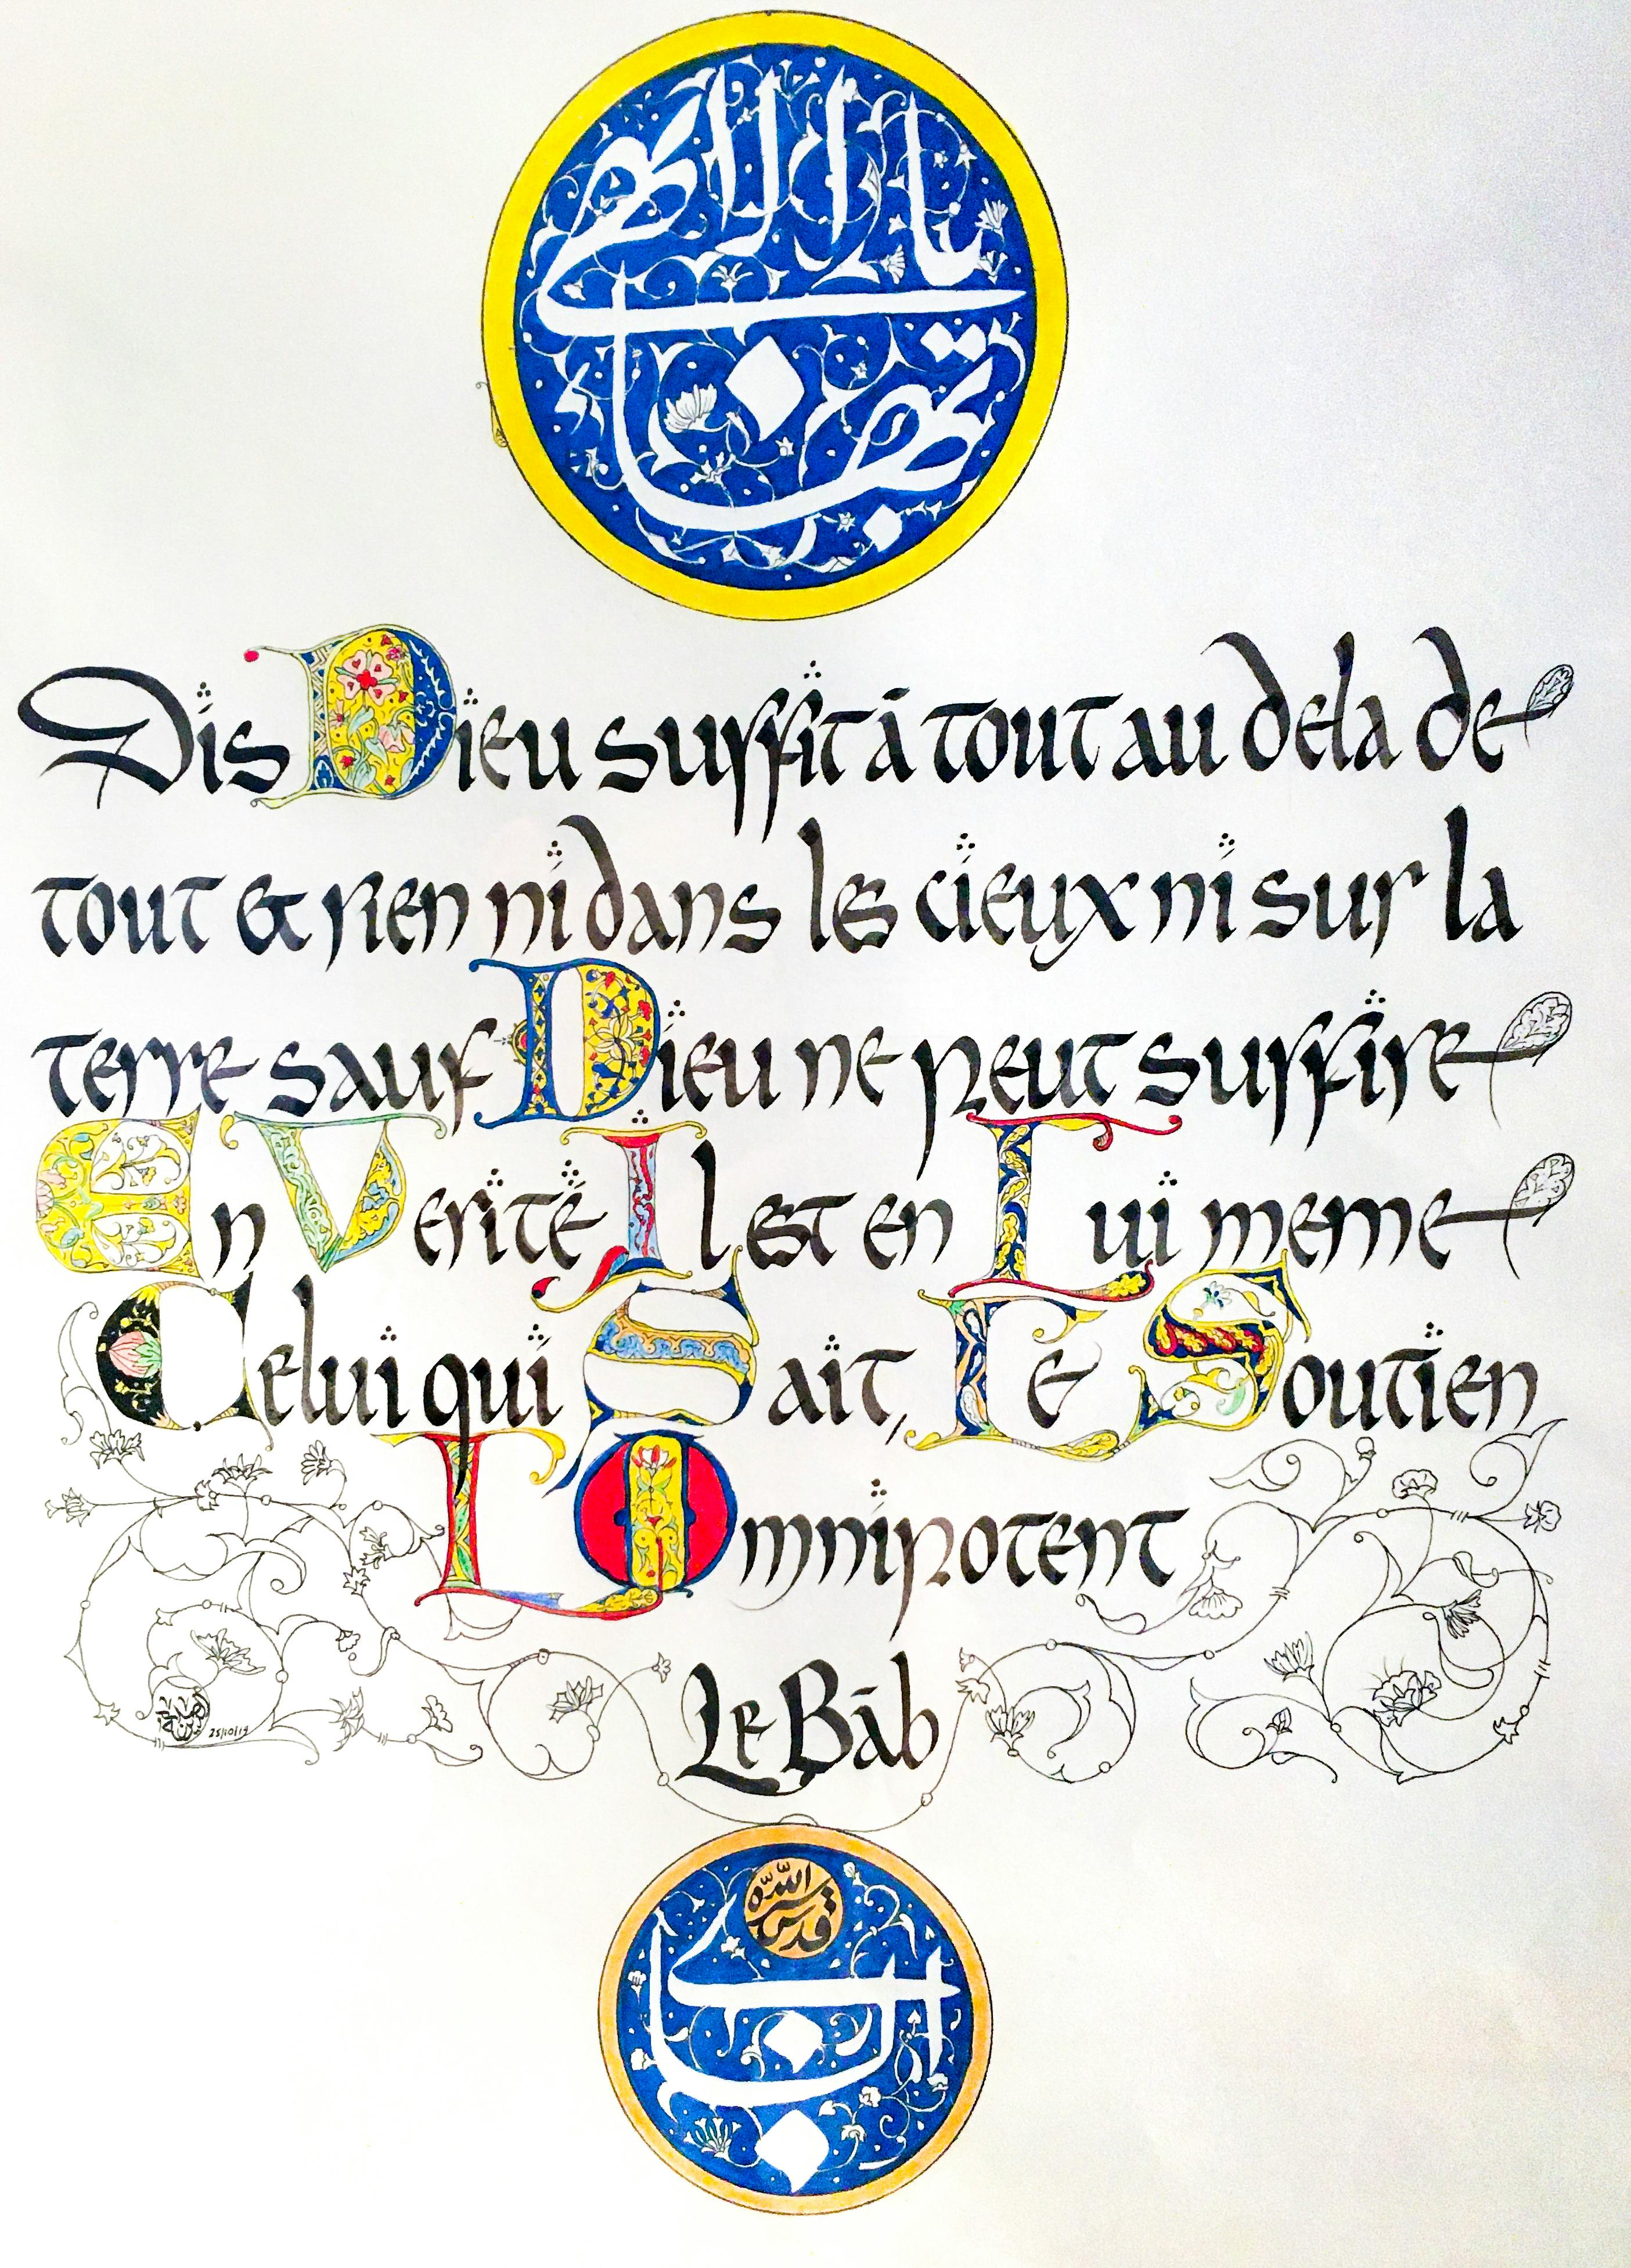 يا بهاء الابهى
Dis Dieu suffit à tout au dela de
tout et rien ni dans les cieux ni sur la
terre sauf Dieu ne peut suffire
En Verité Il est en Lui meme
Celui qui Sait, Le Soutien
L Omnipotent
Le Bāb
25/10/19
قدس سره الله
الباب